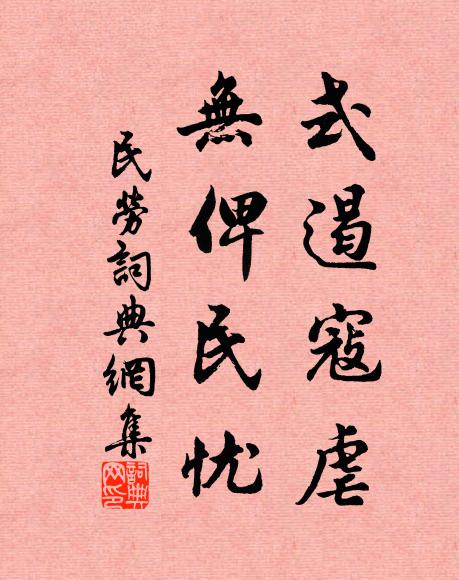 式遏寇虐
無俾民忧
民勞詞典網集
詞典網印